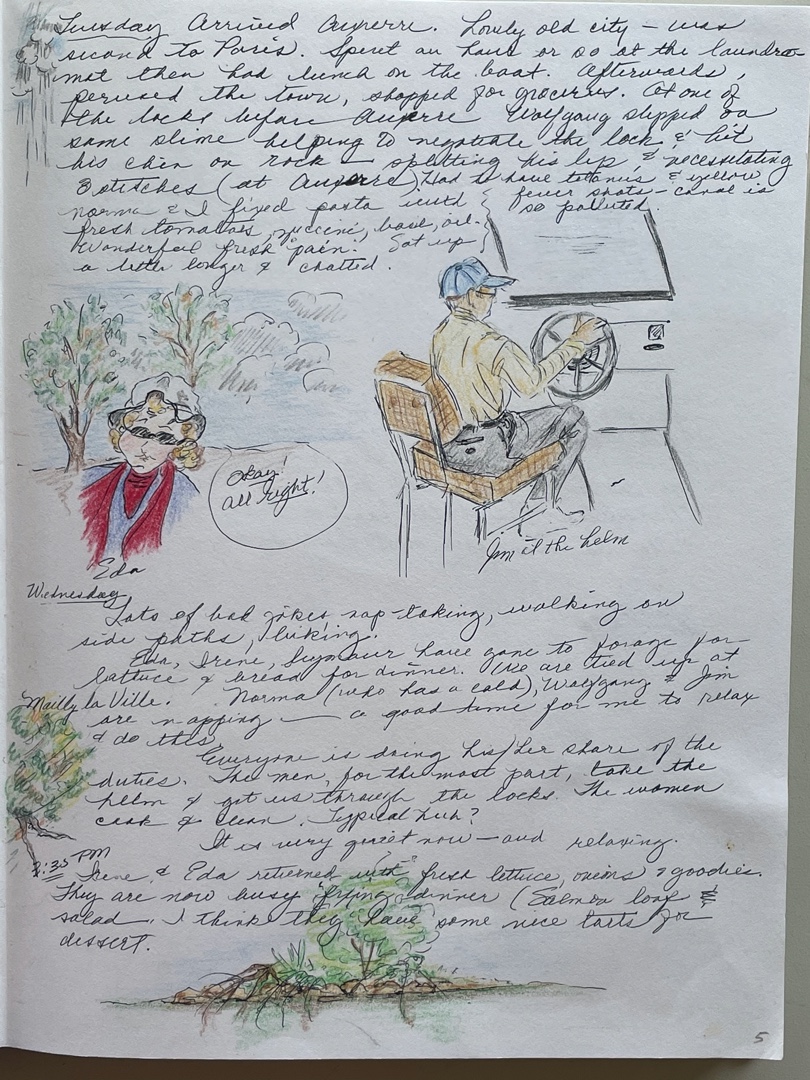 Tuesday Arrived Auxerre. Lovely old city – was
second to Paris. Spent an hour or so at the laundro-
mat then had lunch on the boat. Afterwards,
perused the town, shopped for groceries. At one of
the locks before Auxerre Wolfgang slipped on
some slime helping to negotiate the lock & hit
his chin on rock – splitting his lip & necessitating
3 stitches (at Auxerre). Had to have tetanus & yellow
fever shots – canal is
so polluted.
Norma & I fixed pasta with
fresh tomatoes, zuccini, basil, oil.
Wonderful fresh "pain". Sat up
a little longer & chatted.
Okay!
All right!
Eda
Jim at the helm
Wednesday
Lots of bad jokes, nap-taking, walking on
side paths, biking.
Eda, Irene, Seymour have gone to forage for
lettuce & bread for dinner. We are tied up at
Mailly la Ville. Norma (who has a cold), Wolfgang & Jim
are napping — a good time for me to relax
& do this.
Everyone is doing his/her share of the
duties. The men, for the most part, take the
helm & get us through the locks. The women
cook & clean. Typical huh?
It is very quiet now – and relaxing.
:35 PM
Irene & Eda returned with fresh lettuce, onions & goodies.
They are now busy "fixing" dinner (Salmon loaf &
salad. I think they have some nice tarts for
dessert.
5